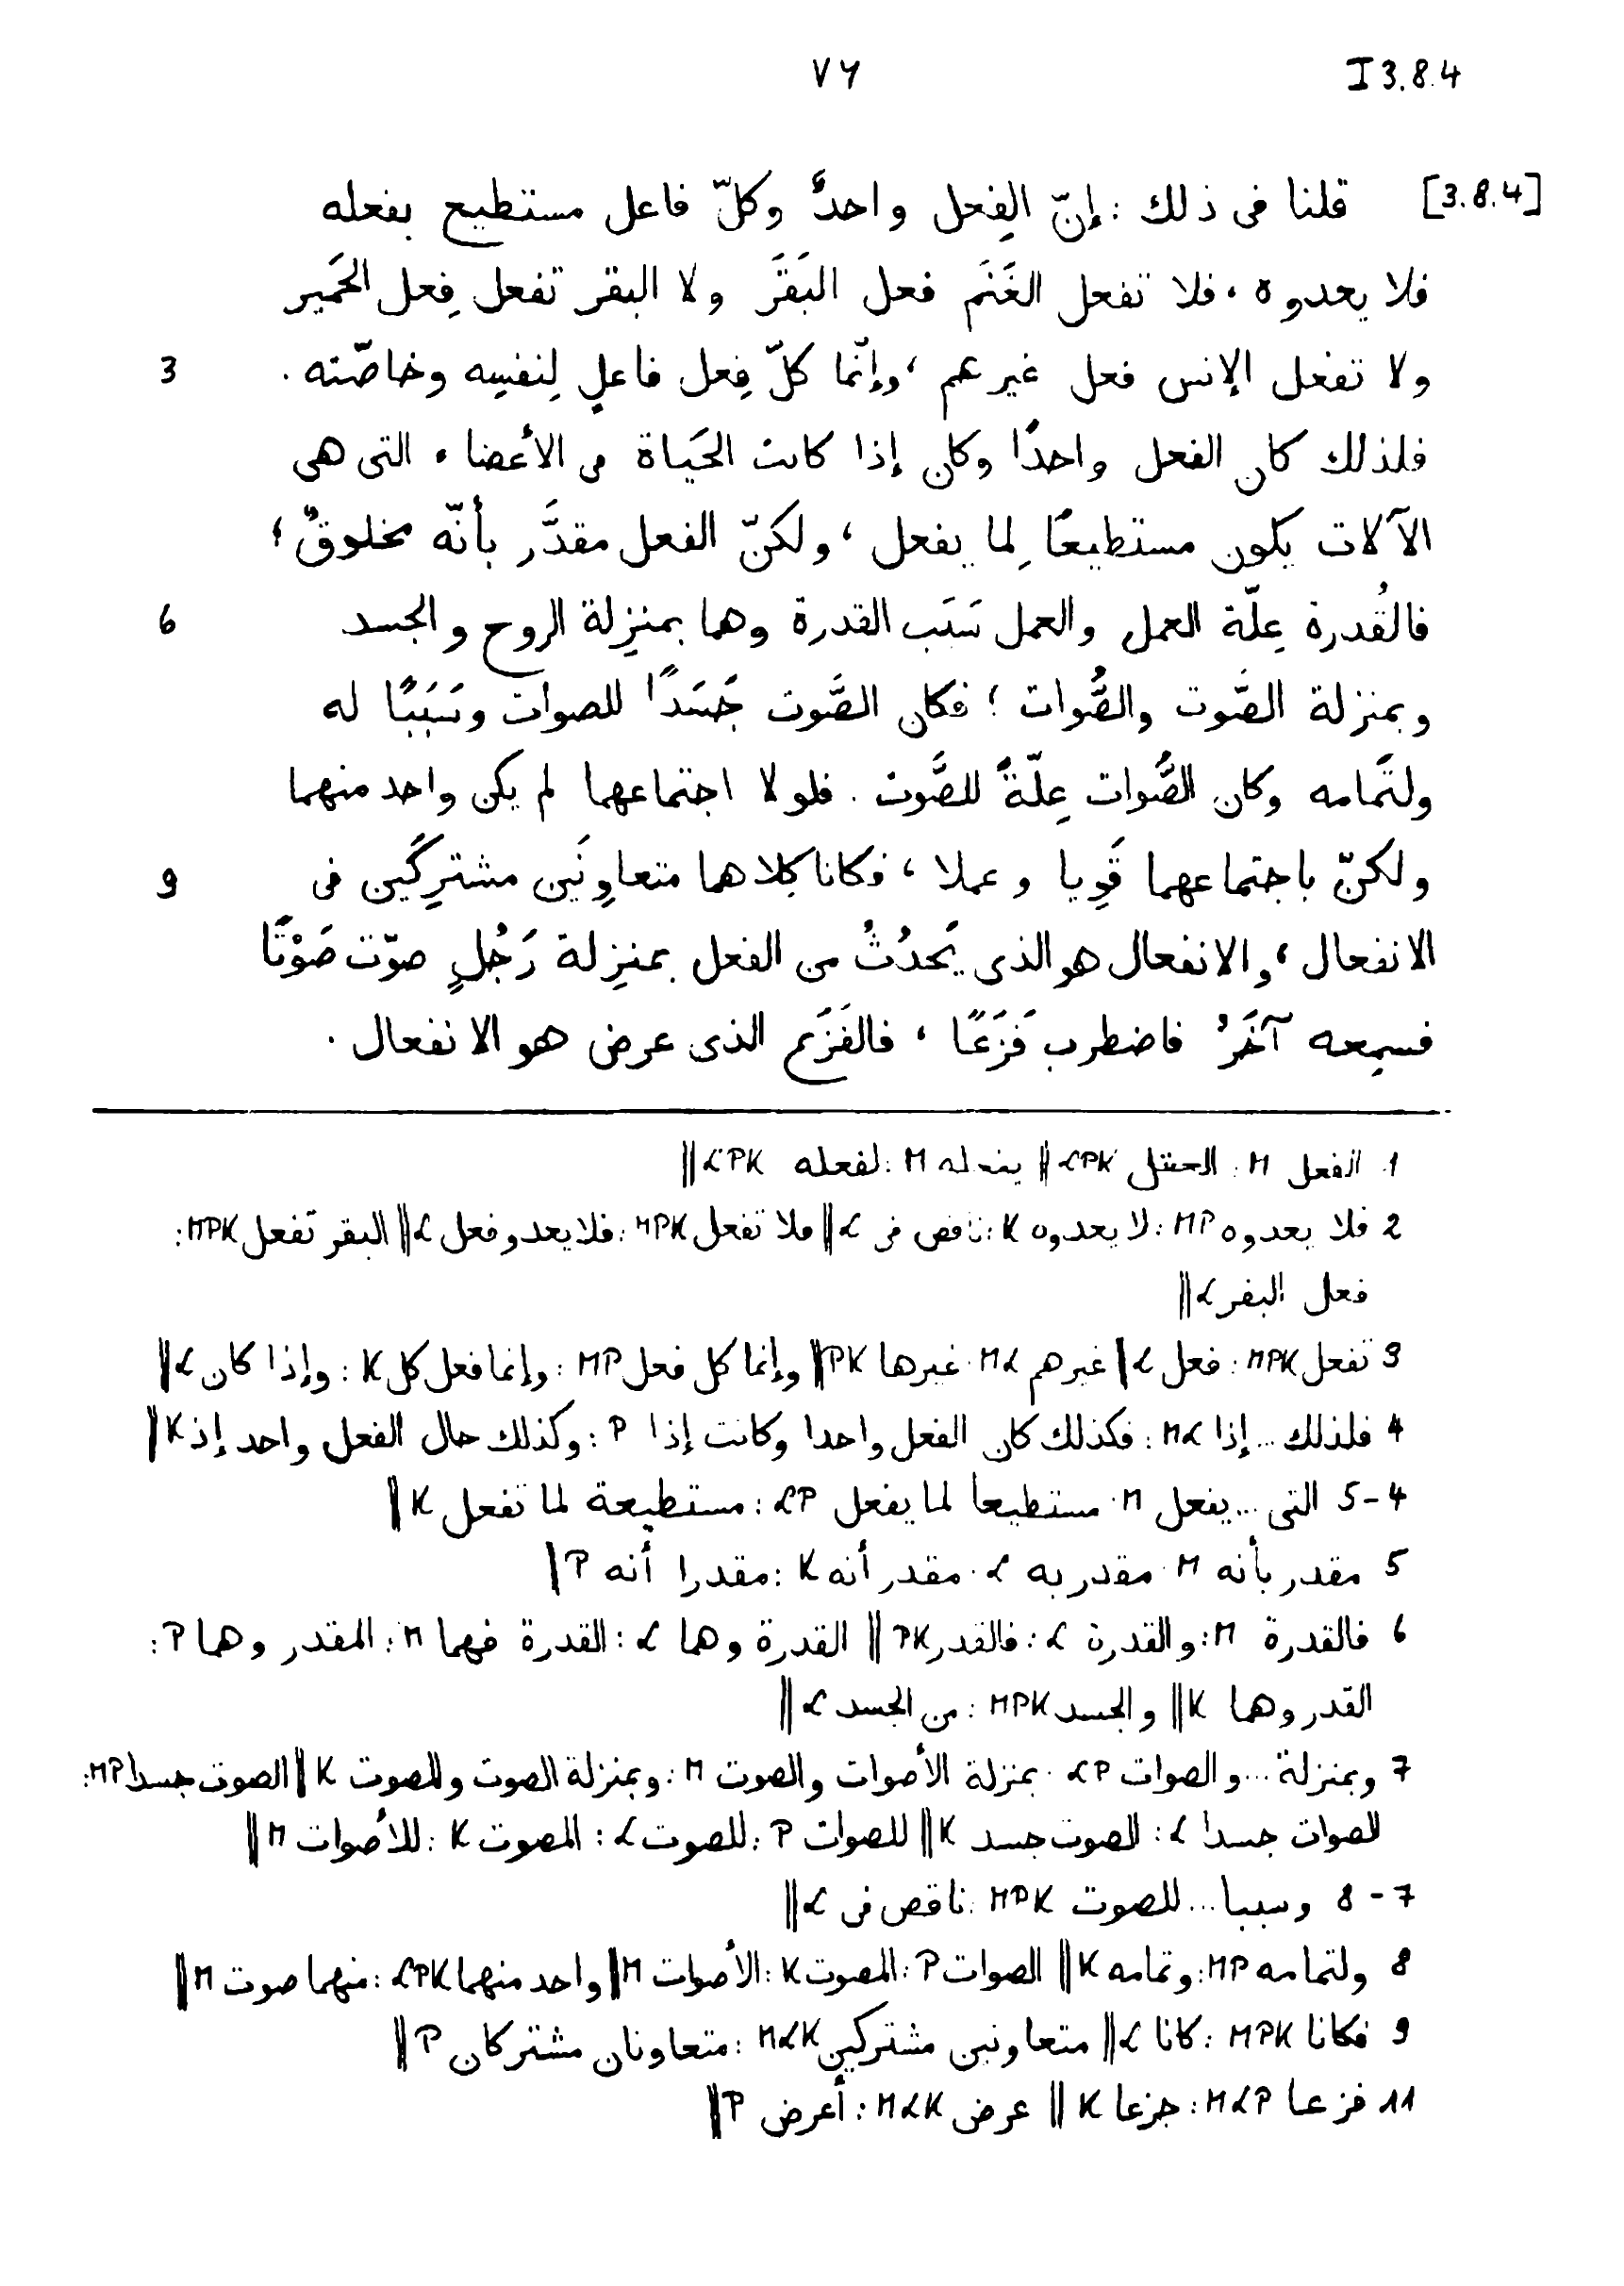 ٧٢ I 3.8.4
[3.8.4] قلنا فى ذلك : إنّ الفِعل واحدٌ وكلّ فاعل مستطيع بفعله
فلا يعدوه ، فلا تفعل الغَنَم فعل البَقَرَ ولا البقر تفعل فِعل الحَمير
3 ولا تفعل الإنس فعل غيرهم ، وإنّما كلّ فِعل فاعلٍ لِنفسِه وخاصّته .
فلذلك كان الفعل واحدًا وكان إذا كانت الحَياة فى الأعضاء التى هى
الآلات يكون مستطيعًا لِما يفعل ، ولكنّ الفعل مقدَّر بأنّه مخلوقٌ ؛
6 فالقُدرة عِلّة العمل والعمل سَبَب القدرة وهما بمنزِلة الروح والجسد
وبمنزلة الصَّوت والصُّوات ؛ فكان الصَّوت جَسَدًا للصوات وسَبَبًا له
ولتَمامه وكان الصُّوات عِلّةً للصَّوت . فلولا اجتماعهما لم يكن واحد منهما
9 ولكنّ باجتماعهما قَوِيا وعملا ، فكانا كِلاهما متعاوِنَين مشترِكَين فى
الانفعال ، والانفعال هو الذى يَحدُثُ من الفعل بمنزِلة رَجُلٍ صوّت صَوْتًا
فسمِعه آخَرُ فاضطرب فَزَعًا ، فالفَزَع الذى عرض هو الانفعال .
1 الفعل M : العقل LPK ‖ بفعله M : لفعله LPK ‖
2 فلا يعدوه MP : لا يعدوه K : ناقص فى L ‖ فلا تفعل MPK : فلا يعدو فعل L ‖ البقر تفعل MPK :
فعل البقر L ‖
3 تفعل MPK : فعل L ‖ غيرهم ML : غيرها PK ‖ وإنما كل فعل MP : وإنما فعل كل K : وإذا كان L ‖
4 فلذلك ... إذا ML : فكذلك كان الفعل واحدا وكانت إذا P : وكذلك حال الفعل واحد إذ K ‖
4-5 التى ... يفعل M : مستطيعا لما يفعل LP : مستطيعة لما تفعل K ‖
5 مقدر بأنه M : مقدر به L : مقدر أنه K : مقدرا أنه P ‖
6 فالقدرة M : والقدرة L : فالقدر PK ‖ القدرة وهما L : القدرة فهما M : المقدر وهما P :
القدر وهما K ‖ والجسد MPK : من الجسد L ‖
7 وبمنزلة ... والصوات LP : بمنزلة الأصوات والصوت M : وبمنزلة الصوت وللصوت K ‖ الصوت جسدا MP :
للصوات جسدا L : الصوت جسد K ‖ للصوات P : للصوت L : المصوت K : للأصوات M ‖
7-8 وسببا ... للصوت MPK : ناقص فى L ‖
8 ولتمامه MP : وتمامه K ‖ الصوات P : المصوت K : الأصوات M ‖ واحد منهما LPK : منهما صوت M ‖
9 فكانا MPK : كانا L ‖ متعاونين مشتركين MLK : متعاونان مشتركان P ‖
11 فزعا MLP : جزعا K ‖ عرض MLK : أعرض P ‖